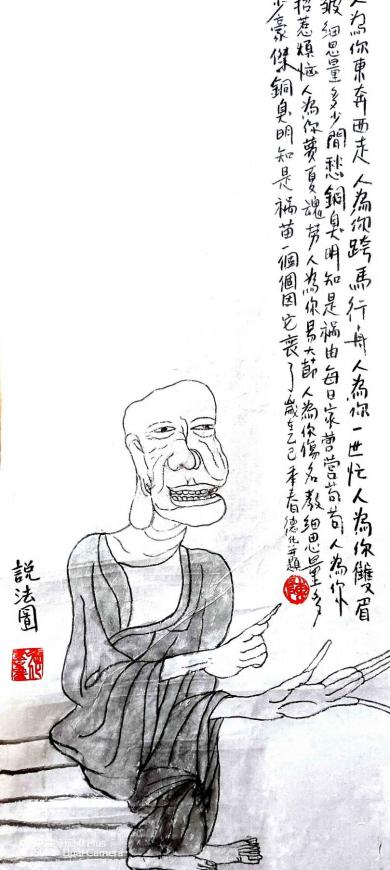 人為你東奔西走人為你跨馬行舟人為你一世忙人為你雙眉
皺細思量多少閒愁銅臭明知是禍由每日家營營苟苟人為你
招惹煩惱人為你夢魂勞人為你易大節人為你傷名教細思量多
少豪傑銅臭明知是禍苗一個個因它喪了歲在乙巳季春德化并題
陳
說法圖
Plus
Dual Camera